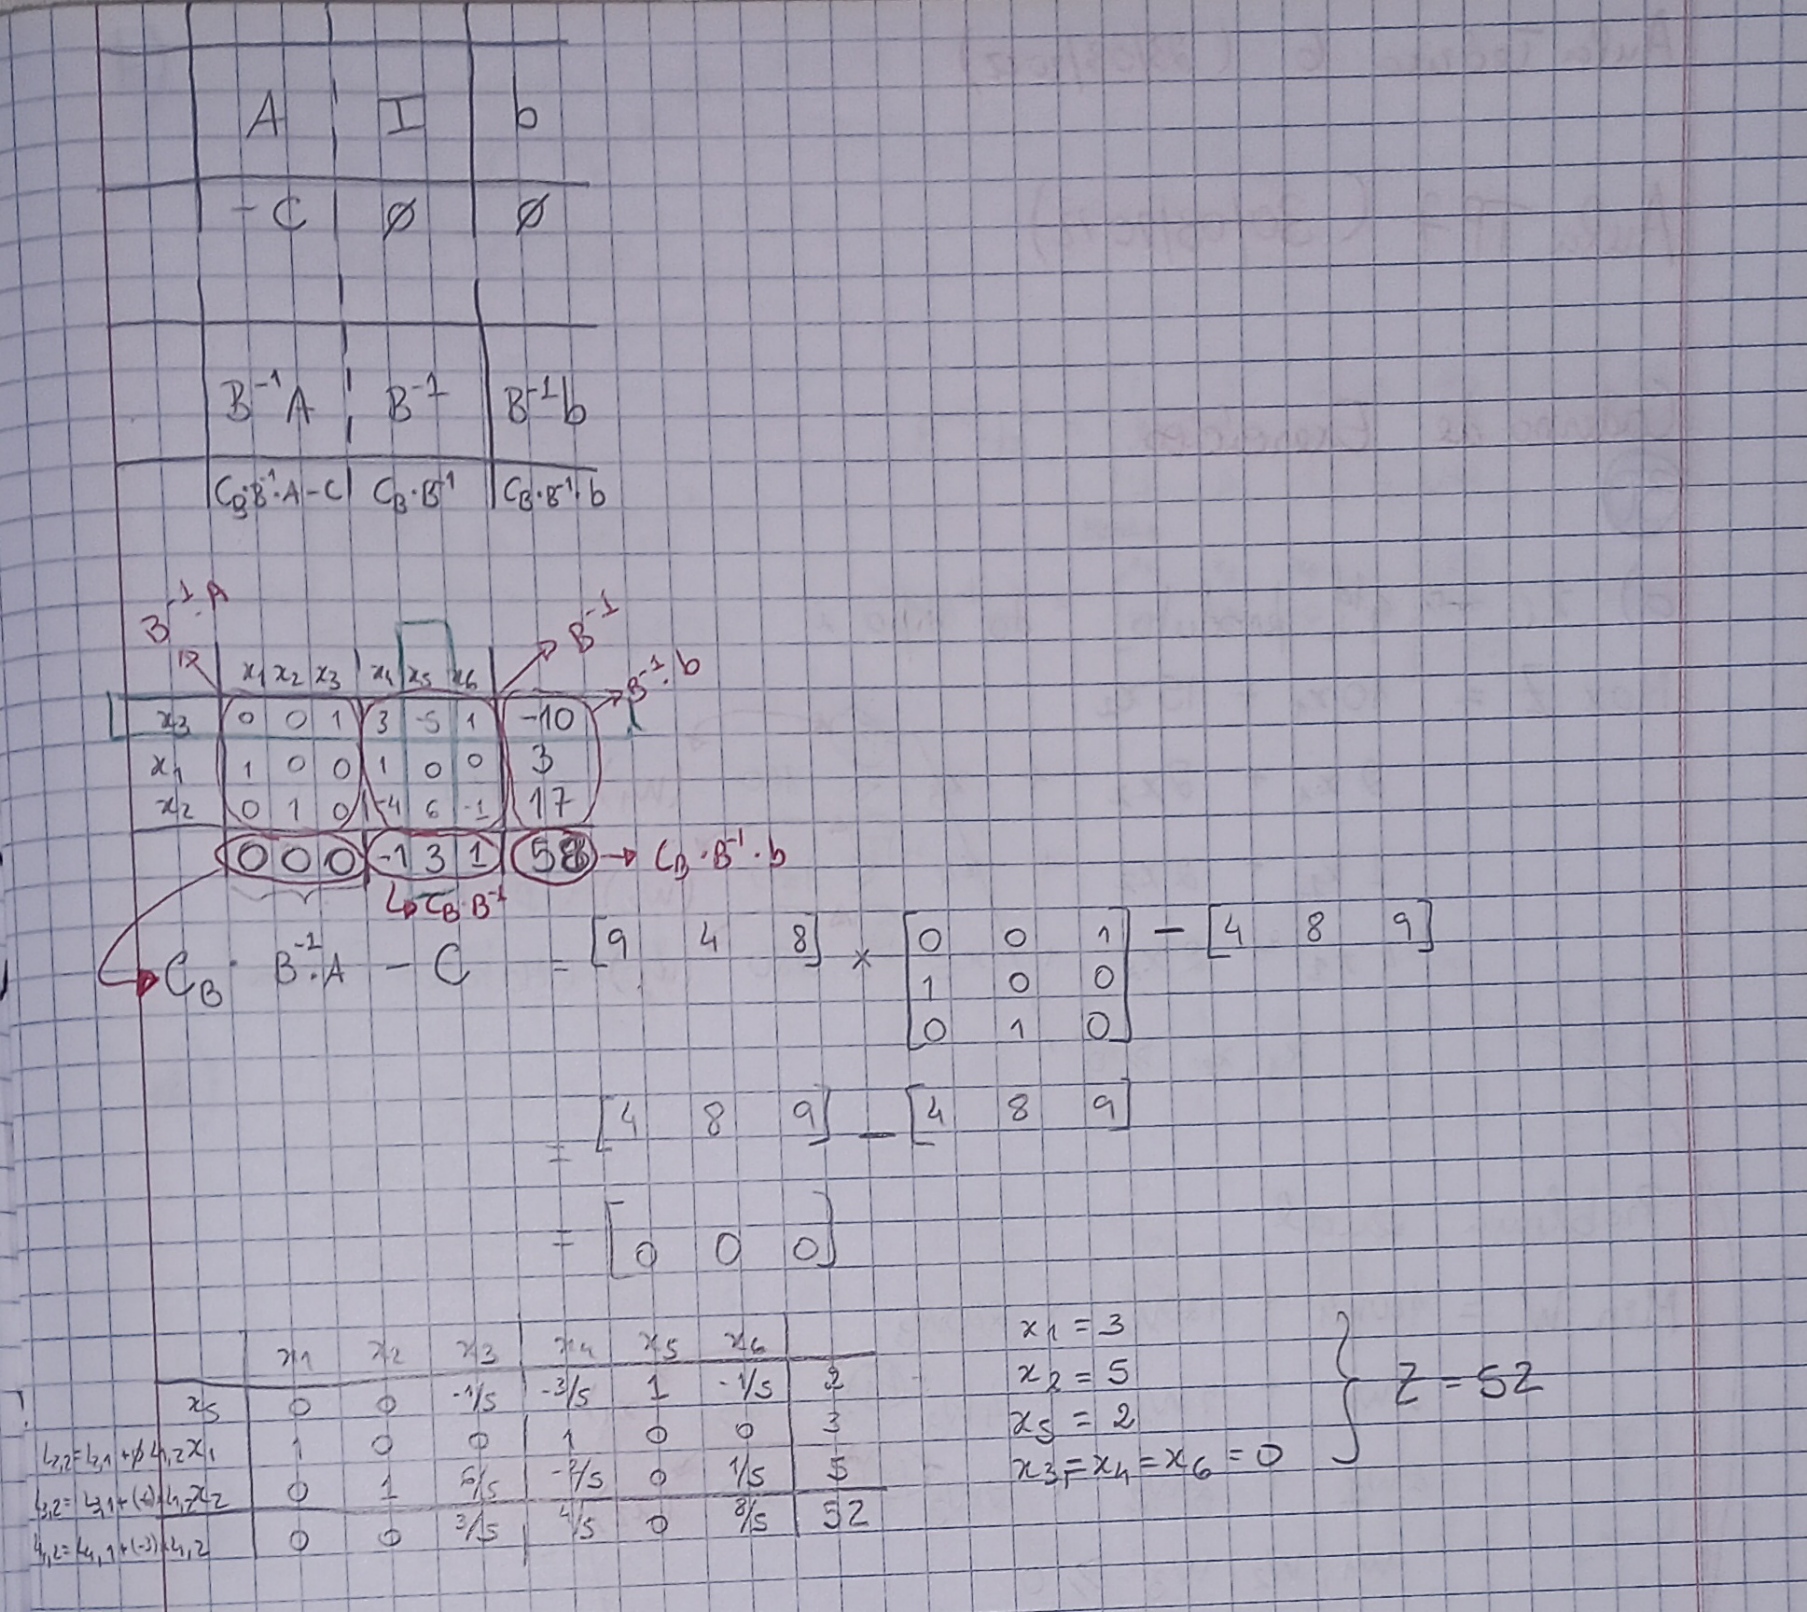 A I b
-C ∅ ∅
B⁻¹A B⁻¹ B⁻¹b
C_B·B⁻¹·A-C C_B·B⁻¹ C_B·B⁻¹·b
B⁻¹·A
B⁻¹
B⁻¹·b
x1 x2 x3 x4 x5 x6
x3 0 0 1 3 -5 1 -10
x1 1 0 0 1 0 0 3
x2 0 1 0 -4 6 -1 17
0 0 0 -1 3 1 → C_B·B⁻¹·b
↳ C_B·B⁻¹
C_B · B⁻¹·A - C = [9 4 8] × [0 0 1 - [4 8 9]
1 0 0
0 1 0]
= [4 8 9] - [4 8 9]
= [0 0 0]
x1 x2 x3 x4 x5 x6
x5 0 0 -1/5 -3/5 1 -1/5 2
x1 1 0 0 1 0 0 3
x2 0 1 6/5 -2/5 0 1/5 5
0 0 3/5 4/5 0 8/5 52
x1 = 3
x2 = 5
x5 = 2
x3 = x4 = x6 = 0
} Z = 52